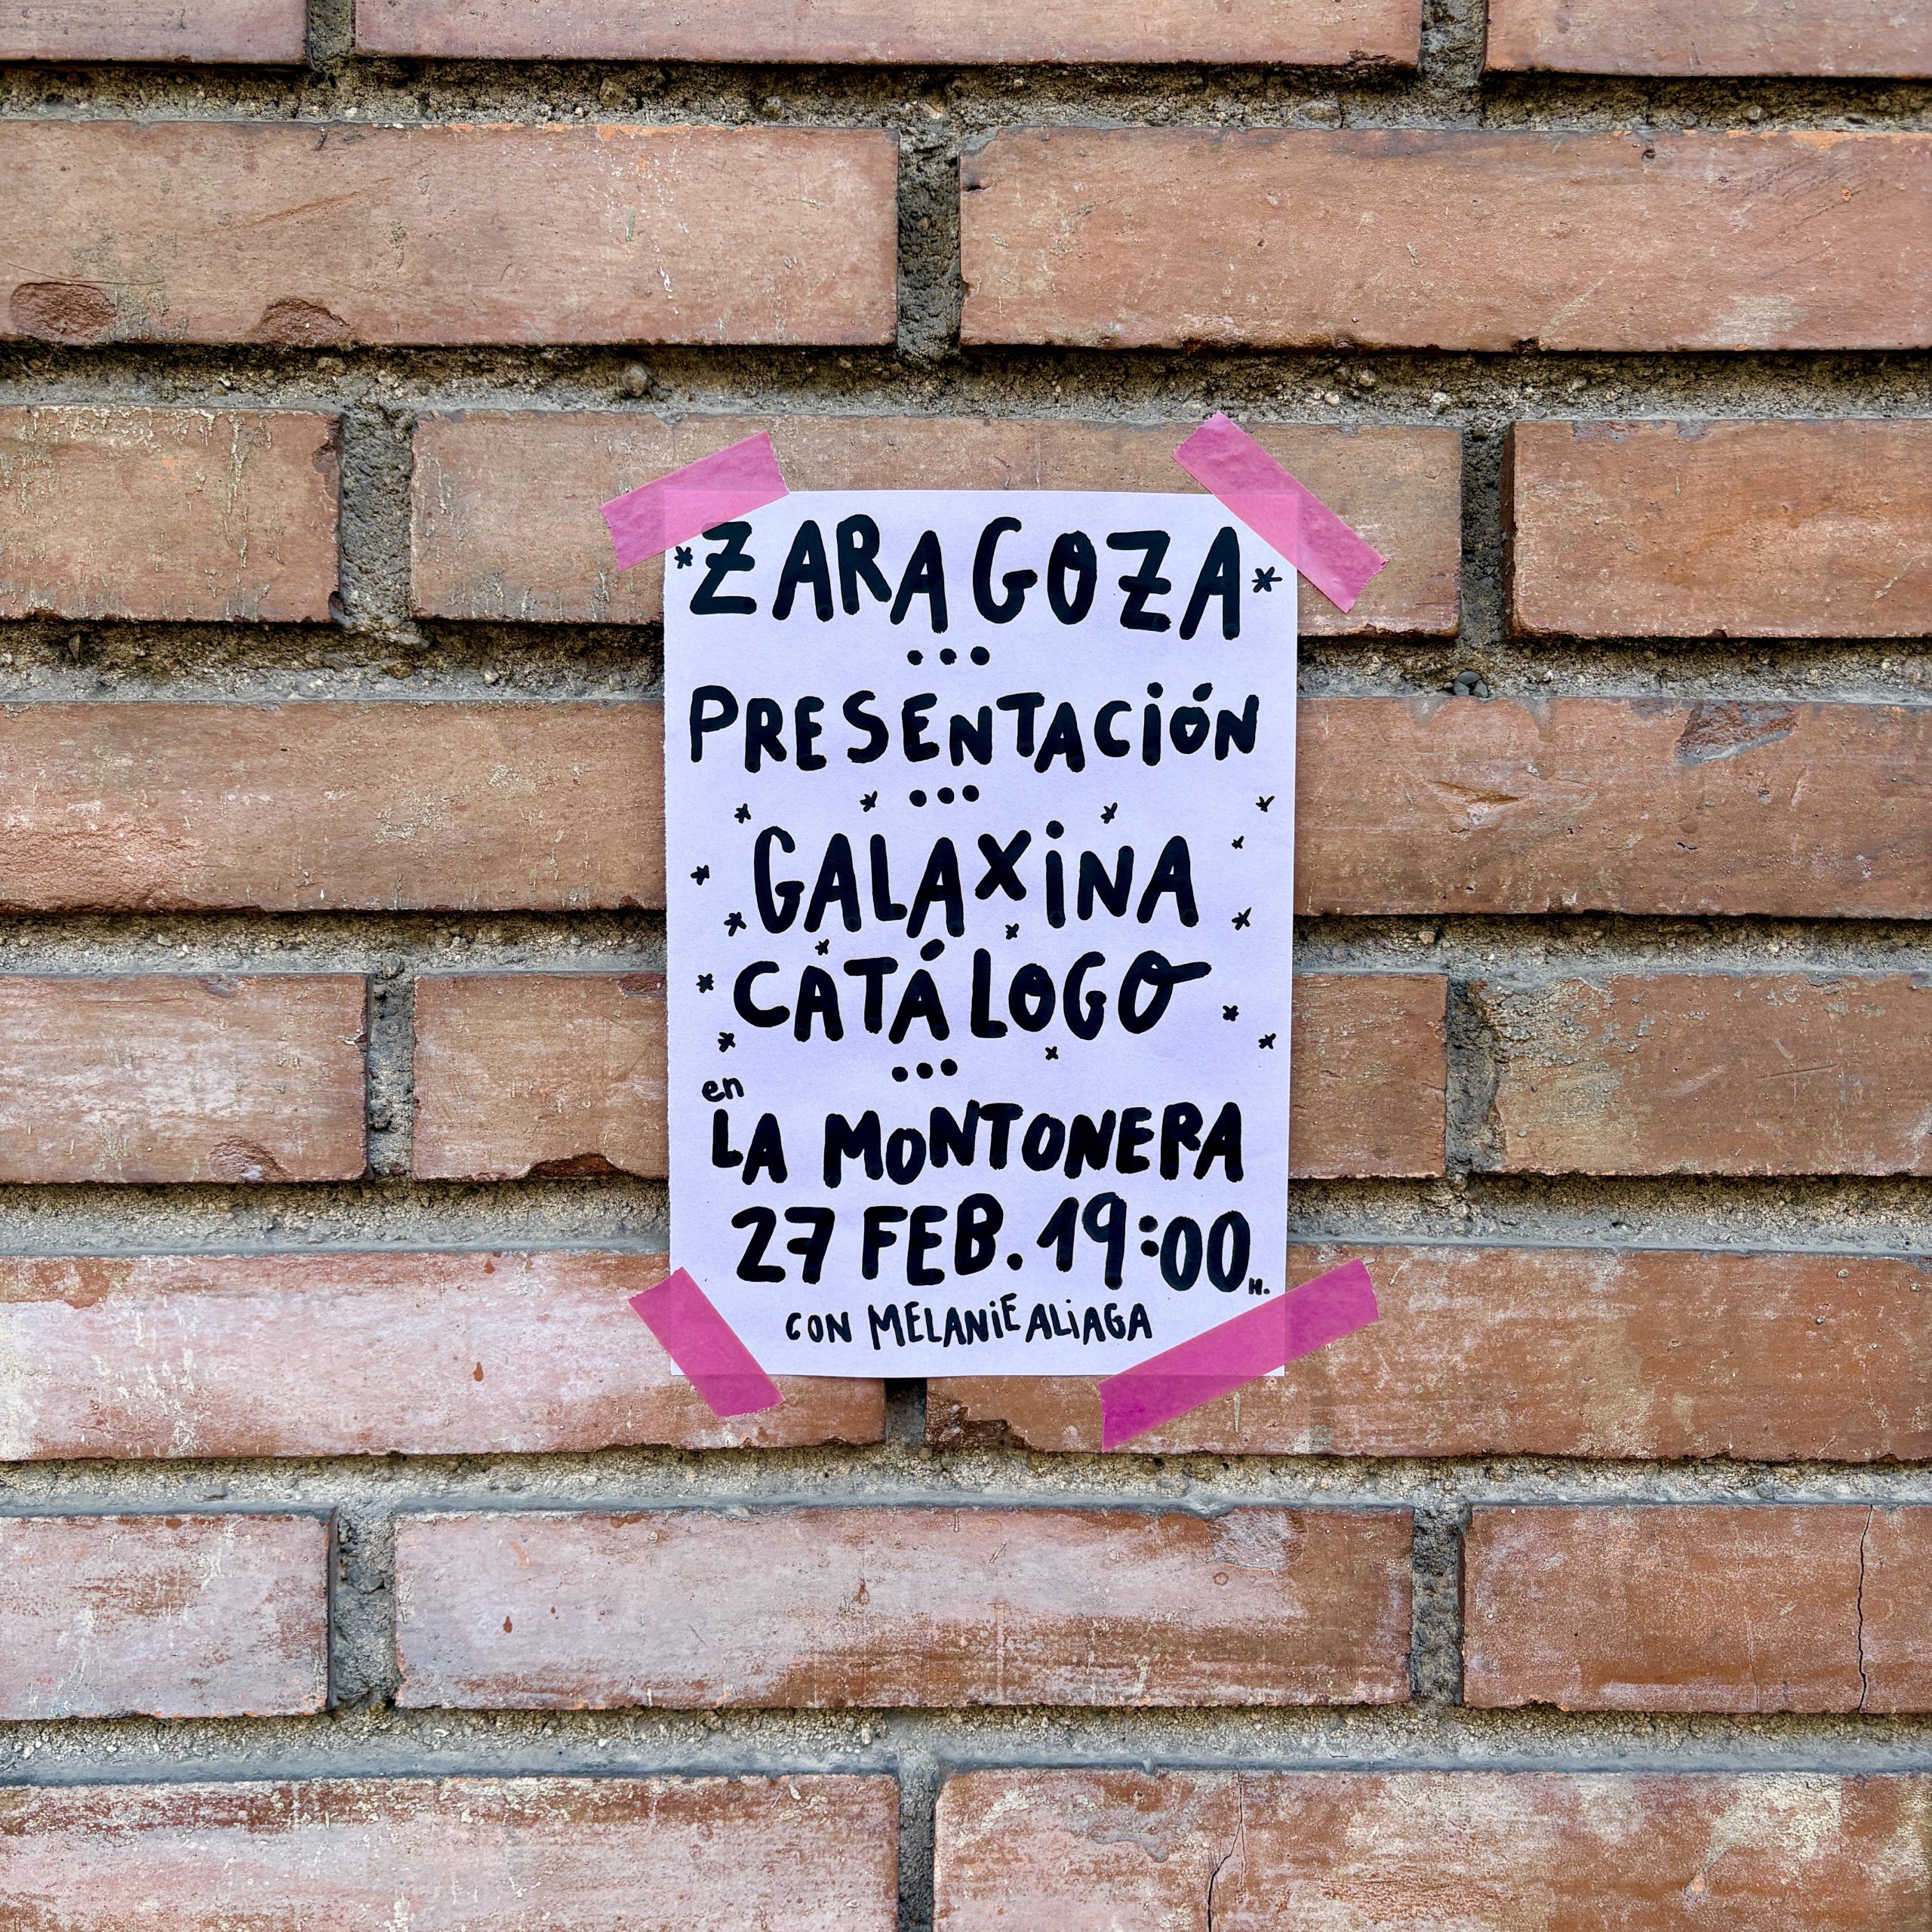 *ZARAGOZA*
...
PRESENTACIÓN
...
GALAXINA
CATÁLOGO
...
en
LA MONTONERA
27 FEB. 19:00 H.
CON MELANIE ALIAGA